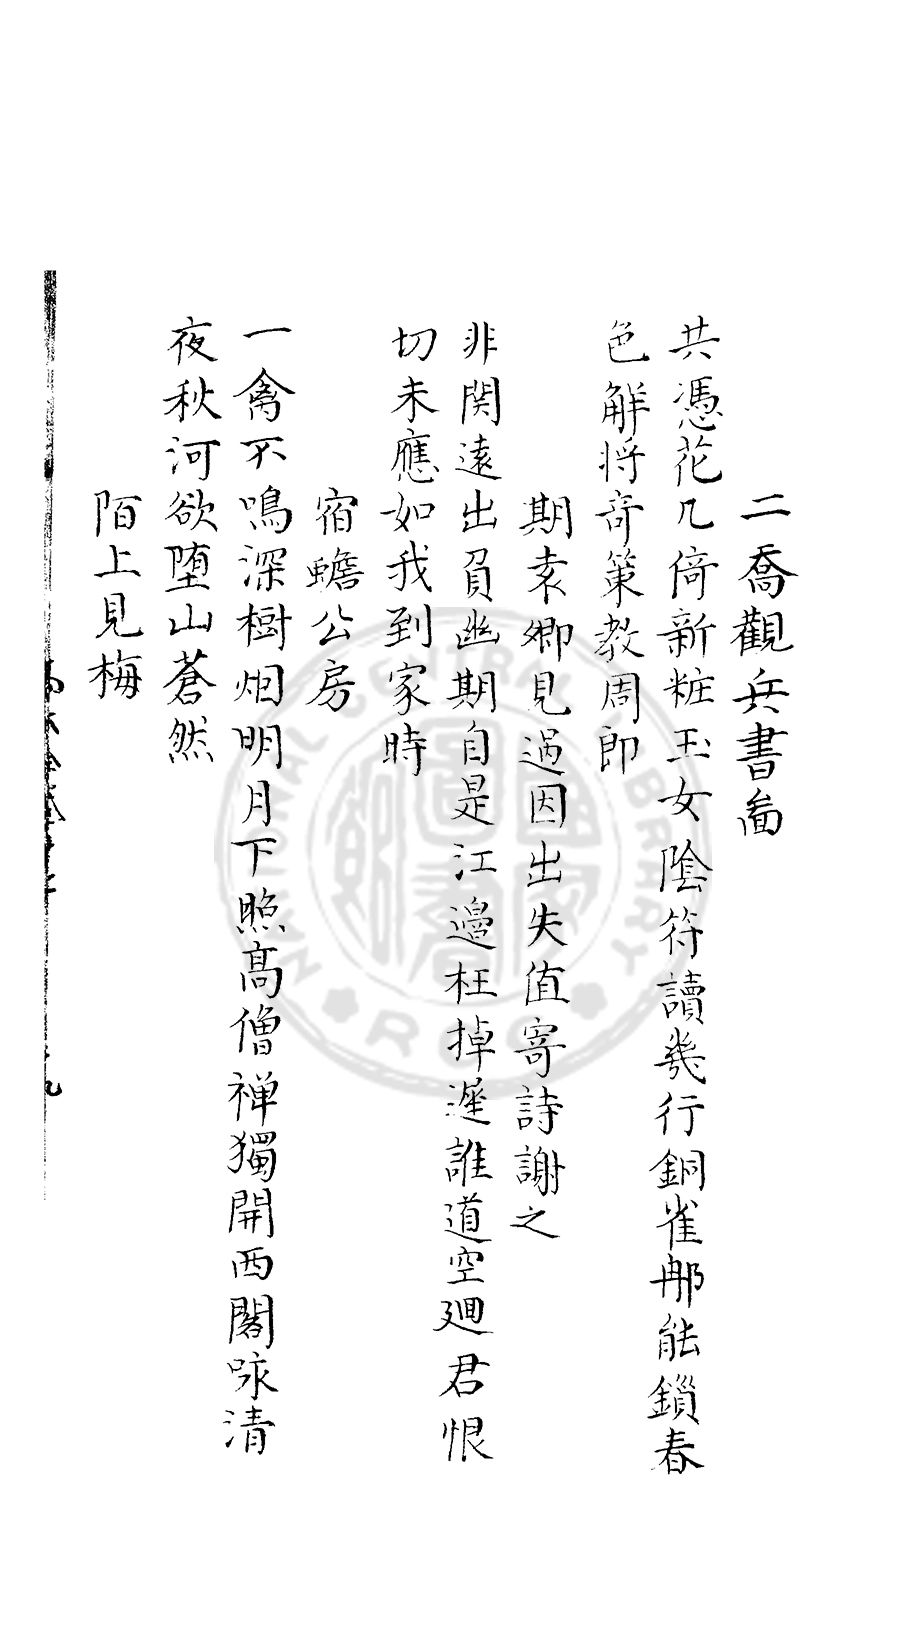 二喬觀兵書啚
共憑花几倚新粧玉女陰符讀幾行銅雀郍能鎖春
色解将竒策教周郎
期袁卿見過因出失值寄詩謝之
非関遠出負幽期自是江邉枉掉遲誰道空廻君恨
切未應如我到家時
宿蟾公房
一禽不鳴深樹烟明月下照髙僧禅獨開西閣咏清
夜秋河欲堕山蒼然
陌上見梅
NATIONAL CENTRAL LIBRARY
R.O.C